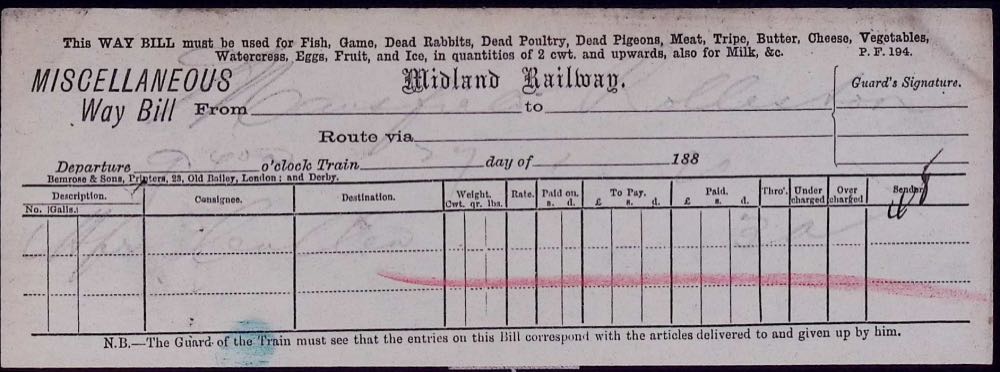 This WAY BILL must be used for Fish, Game, Dead Rabbits, Dead Poultry, Dead Pigeons, Meat, Tripe, Butter, Cheese, Vegetables,
Watercress, Eggs, Fruit, and Ice, in quantities of 2 cwt. and upwards, also for Milk, &c. P. F. 194.
MISCELLANEOUS Midland Railway. Guard's Signature.
Way Bill From Mansfield to
Route via
Departure o'clock Train day of 188
Bemrose & Sons, Printers, 23, Old Bailey, London; and Derby.
Description. Consignee. Destination. Weight. Rate. Paid on. To Pay. Paid. Thro'. Under charged Over charged Sender
No. Galls. Cwt. qr. lbs. s. d. £ s. d. £ s. d.
N.B.—The Guard of the Train must see that the entries on this Bill correspond with the articles delivered to and given up by him.